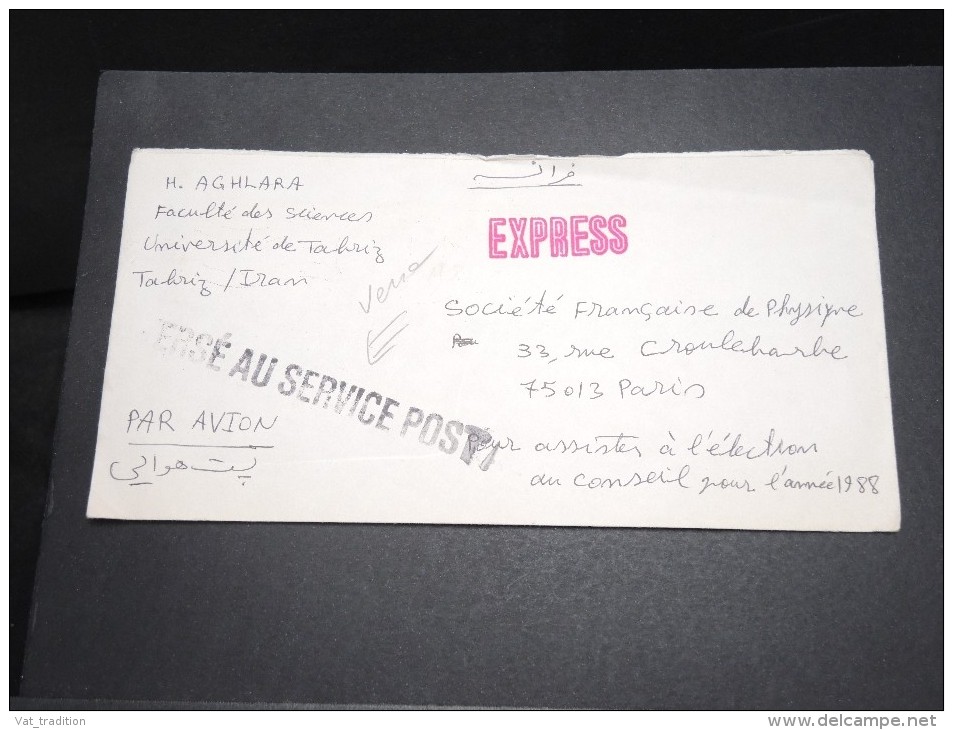 H. AGHLARA
Faculté des Sciences
Université de Tabriz
Tabriz / Iran
فرانسه
EXPRESS
Société Française de Physique
33, rue Croulebarbe
75013 Paris
ERSÉ AU SERVICE POSTA
PAR AVION
پست هوائی
Pour assister à l'élection
au conseil pour l'année 1988
Vat_tradition
www.delcampe.net